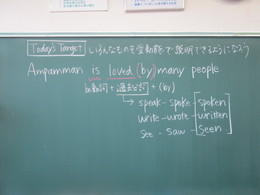 Today's Target いろんなものを受動態で説明できるようになろう
Ampamman is loved (by) many people
be動詞 + 過去分詞 + (by)
speak - spoke - spoken
write - wrote - written
see - saw - seen